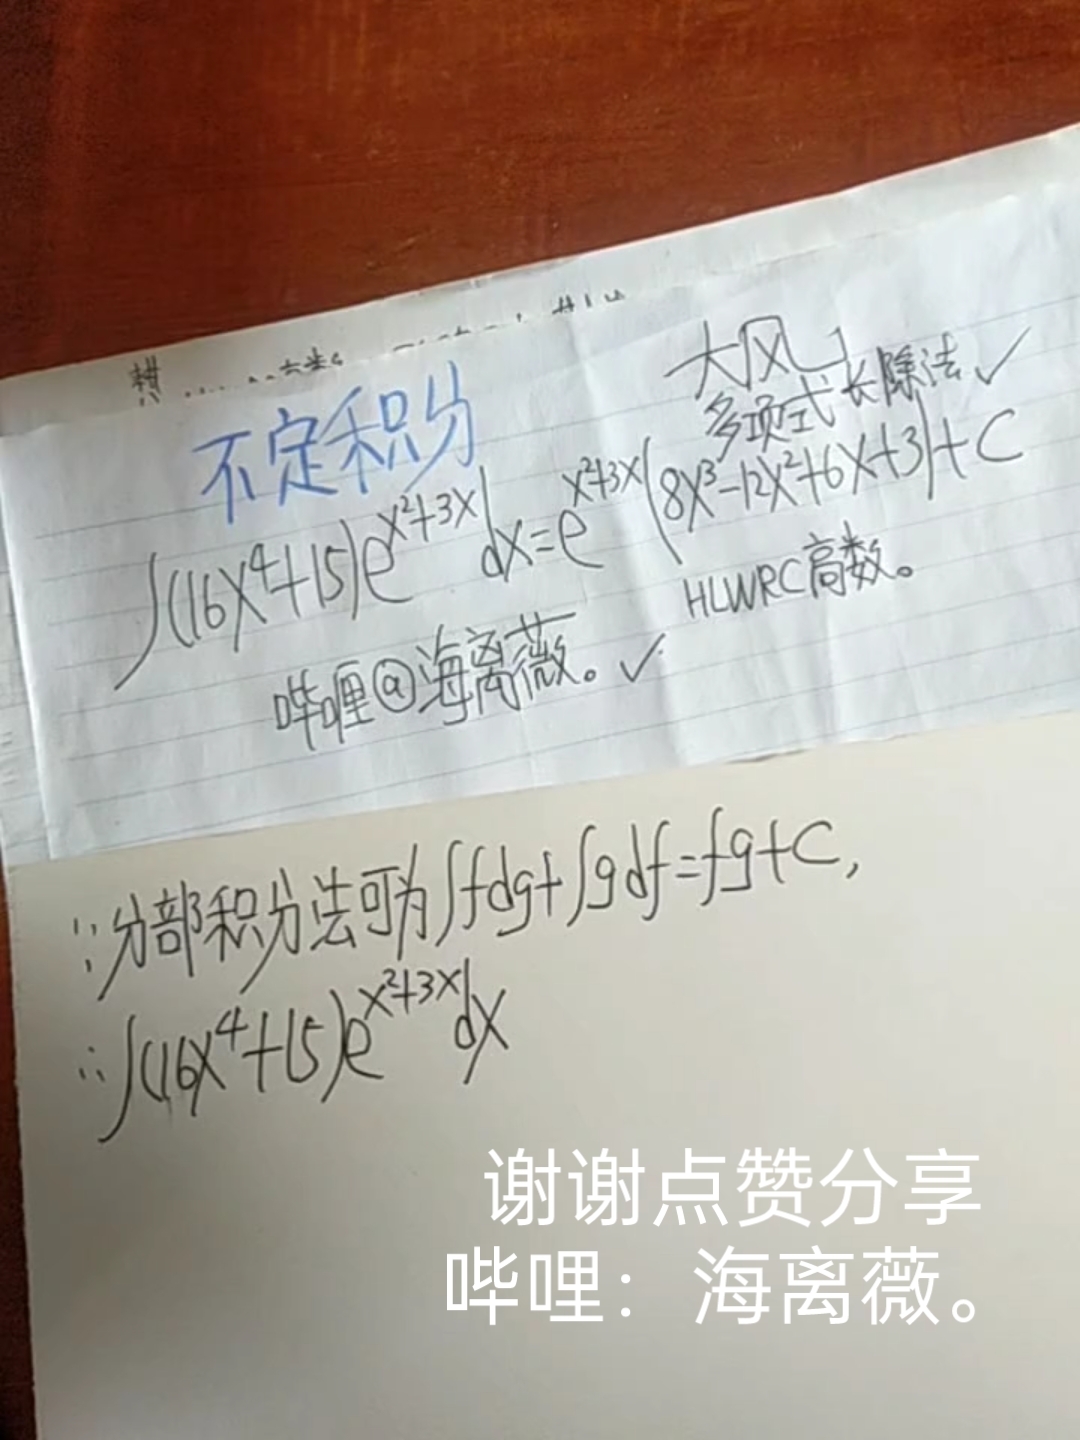 大风
多项式长除法✓
不定积分
∫(16x⁴+15)e^(x²+3x)dx=e^(x²+3x)(8x³-12x²+6x+3)+C
HLWRC高数。
哔哩@海离薇。✓
∵分部积分法可为∫fdg+∫gdf=fg+C,
∴∫(16x⁴+15)e^(x²+3x)dx
谢谢点赞分享
哔哩：海离薇。